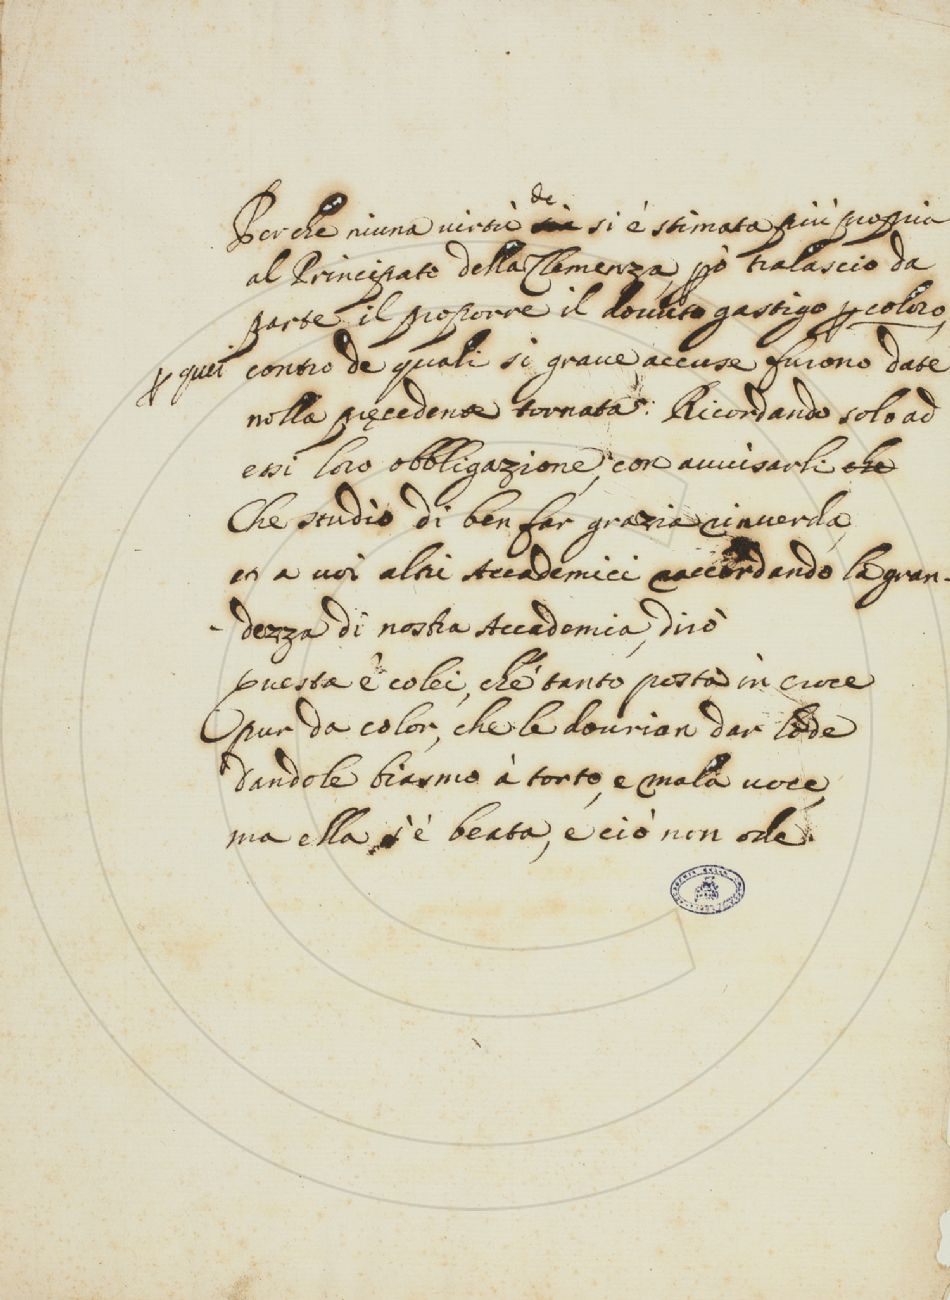 de
Perche niuna virtù si è stimata più propria
al Principato della Clemenza, pò tralascio da
parte il proporre il douuto gastigo p coloro,
p quei contro de quali si graue accuse furono date
nella precedente tornata: Ricordando solo ad
essi loro obbligazione, con auuisarli che
Che studio di ben far grazia rinuerda,
et a uoi altri Accademici raccordando la gran-
-dezza di nostra Accademia, dirò
Questa è colei, ch'è tanto posta in croce
pur da color, che le dourian dar lode
dandole biasmo à torto, e mala uoce,
ma ella s'è beata, e ciò non ode.